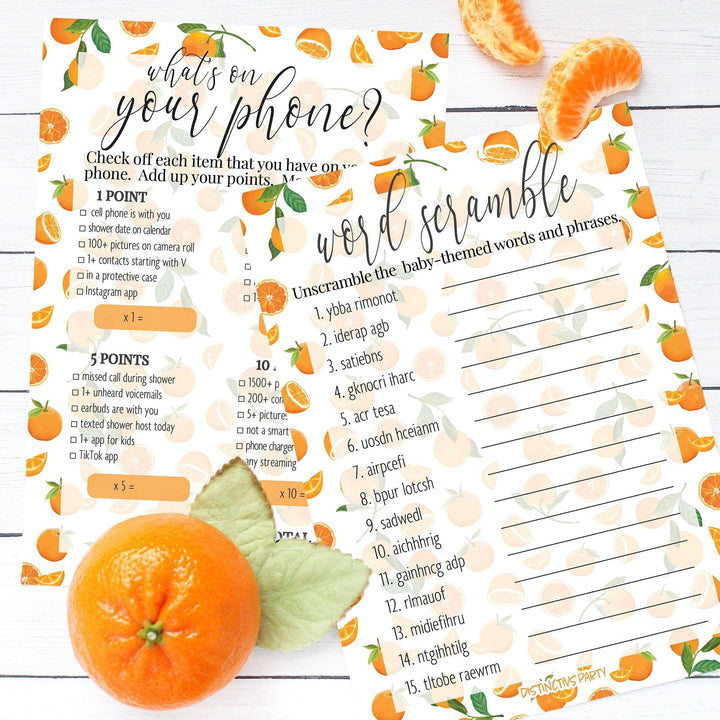 what's on
your phone?
Check off each item that you have on
phone. Add up your points.
1 POINT
cell phone is with you
shower date on calendar
100+ pictures on camera roll
1+ contacts starting with V
in a protective case
Instagram app
x 1 =
5 POINTS
missed call during shower
1+ unheard voicemails
earbuds are with you
texted shower host today
1+ app for kids
TikTok app
x 5 =
10
1500+
200+
5+ picture
not a smart
phone charger
any streaming
x 10 =
word scramble
Unscramble the baby-themed words and phrases.
1. ybba rimonot
2. iderap agb
3. satiebns
4. gknocri iharc
5. acr tesa
6. uosdn hceianm
7. airpcefi
8. bpur lotcsh
9. sadwedl
10. aichhhrig
11. gainhncg adp
12. rlmauof
13. midiefihru
14. ntgihhtilg
15. tltobe raewrm
DISTINCTIVS PARTY